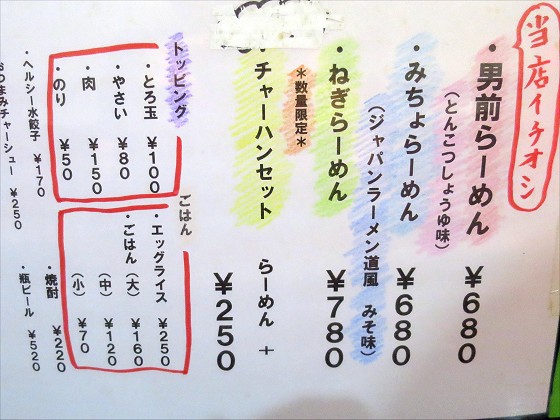 当店イチオシ
・男前らーめん ￥680
(とんこつしょうゆ味)
・みちょらーめん ￥680
(ジャパンラーメン道風 みそ味)
・ねぎらーめん ￥780
＊数量限定＊
・チャーハンセット らーめん ＋ ￥250
トッピング
・とろ玉 ￥100
・やさい ￥80
・肉 ￥150
・のり ￥50
ごはん
・エッグライス ￥250
・ごはん (大) ￥160
(中) ￥120
(小) ￥70
・ヘルシー水餃子 ￥170
おつまみチャーシュー ￥250
・焼酎 ￥220
・瓶ビール ￥520